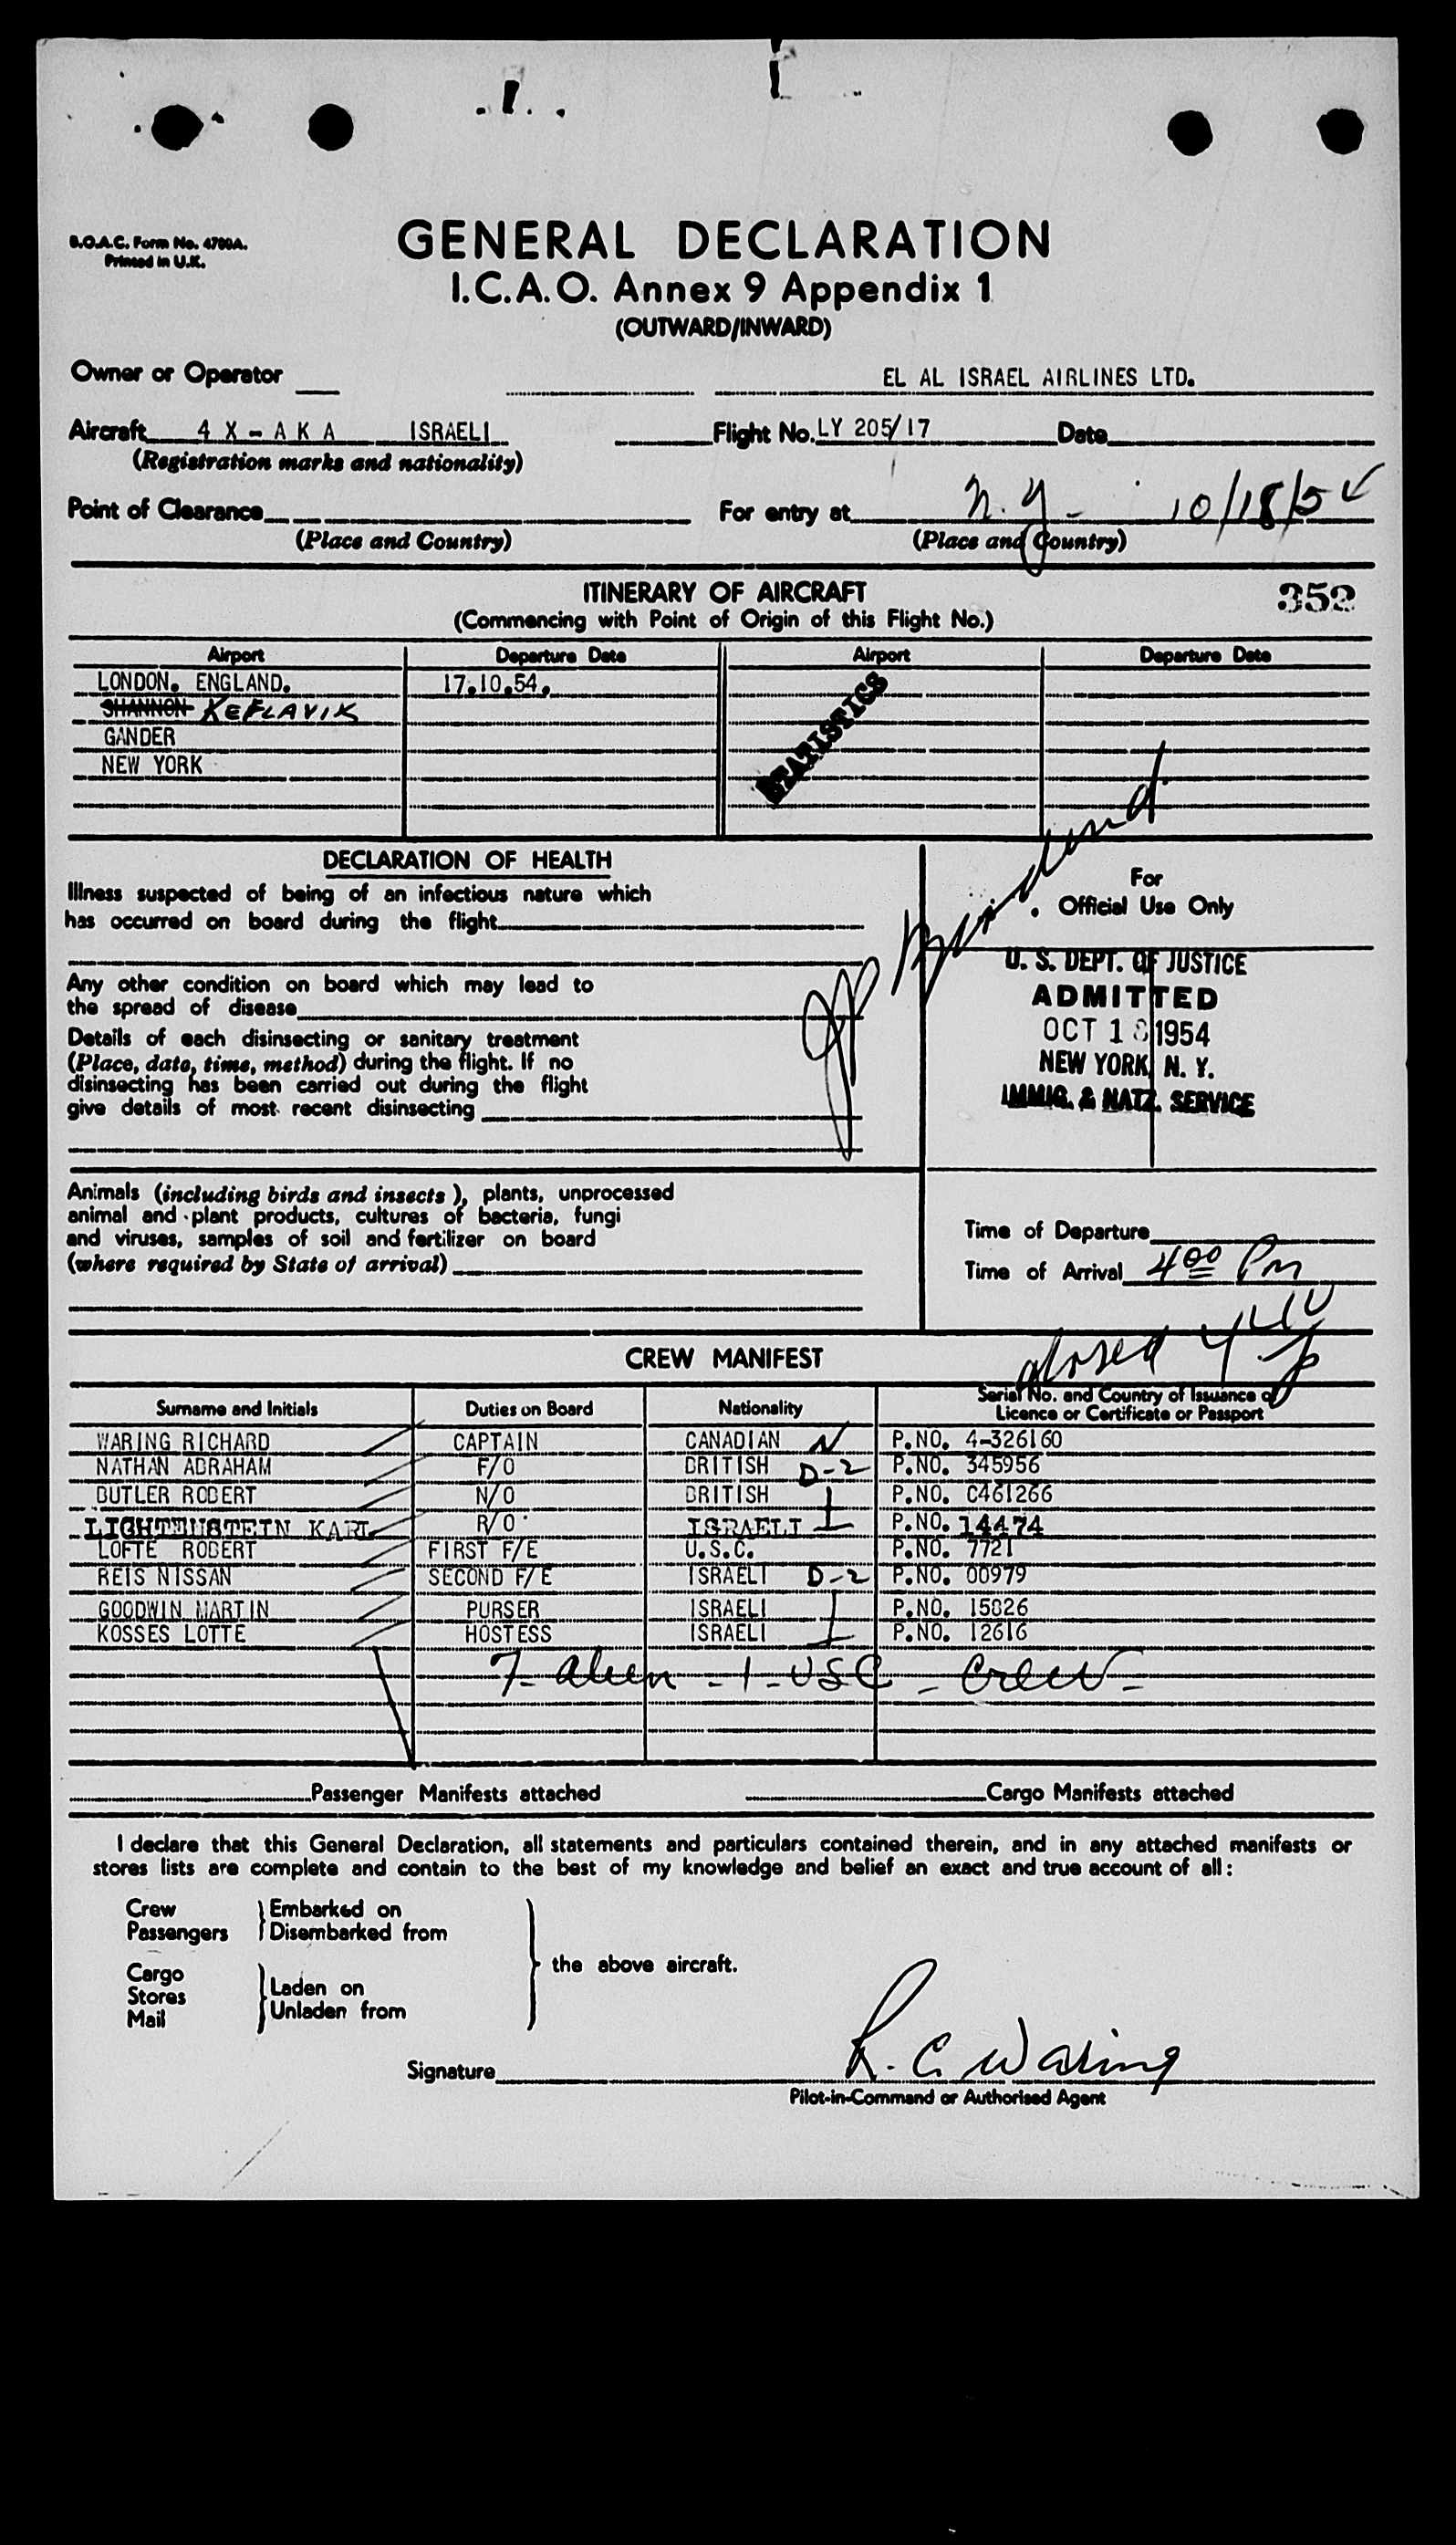 B.O.A.C. Form No. 4700A.
Printed in U.K.
GENERAL DECLARATION
I.C.A.O. Annex 9 Appendix 1
(OUTWARD/INWARD)
Owner or Operator EL AL ISRAEL AIRLINES LTD.
Aircraft 4 X - A K A ISRAELI Flight No. LY 205/17 Date
(Registration marks and nationality)
Point of Clearance For entry at N.Y- 10/18/54
(Place and Country) (Place and Country)
ITINERARY OF AIRCRAFT
352
(Commencing with Point of Origin of this Flight No.)
Airport Departure Date Airport Departure Date
LONDON. ENGLAND. 17.10.54.
SHANNON KEFLAVIK
GANDER
NEW YORK
STATISTICS
DECLARATION OF HEALTH
Illness suspected of being of an infectious nature which
has occurred on board during the flight
Any other condition on board which may lead to
the spread of disease
Details of each disinsecting or sanitary treatment
(Place, date, time, method) during the flight. If no
disinsecting has been carried out during the flight
give details of most recent disinsecting
Animals (including birds and insects), plants, unprocessed
animal and plant products, cultures of bacteria, fungi
and viruses, samples of soil and fertilizer on board
(where required by State of arrival)
For
Official Use Only
U. S. DEPT. OF JUSTICE
ADMITTED
OCT 18 1954
NEW YORK, N. Y.
IMMIG. & NATZ. SERVICE
Time of Departure
Time of Arrival 4 00 PM
closed
CREW MANIFEST
Surname and Initials Duties on Board Nationality Serial No. and Country of Issuance of
Licence or Certificate or Passport
WARING RICHARD CAPTAIN CANADIAN P.NO. 4-326160
NATHAN ABRAHAM F/O BRITISH D-2 P.NO. 345956
BUTLER ROBERT N/O BRITISH P.NO. C461266
LICHTENSTEIN KARL R/O ISRAELI P.NO. 14474
LOFTE ROBERT FIRST F/E U.S.C. P.NO. 7721
REIS NISSAN SECOND F/E ISRAELI D-2 P.NO. 00979
GOODWIN MARTIN PURSER ISRAELI P.NO. 15826
KOSSES LOTTE HOSTESS ISRAELI P.NO. 12616
7- alien - 1 - USC - Crew -
Passenger Manifests attached Cargo Manifests attached
I declare that this General Declaration, all statements and particulars contained therein, and in any attached manifests or
stores lists are complete and contain to the best of my knowledge and belief an exact and true account of all:
Crew Embarked on
Passengers Disembarked from
the above aircraft.
Cargo
Stores Laden on
Mail Unladen from
Signature R. C. Waring
Pilot-in-Command or Authorised Agent